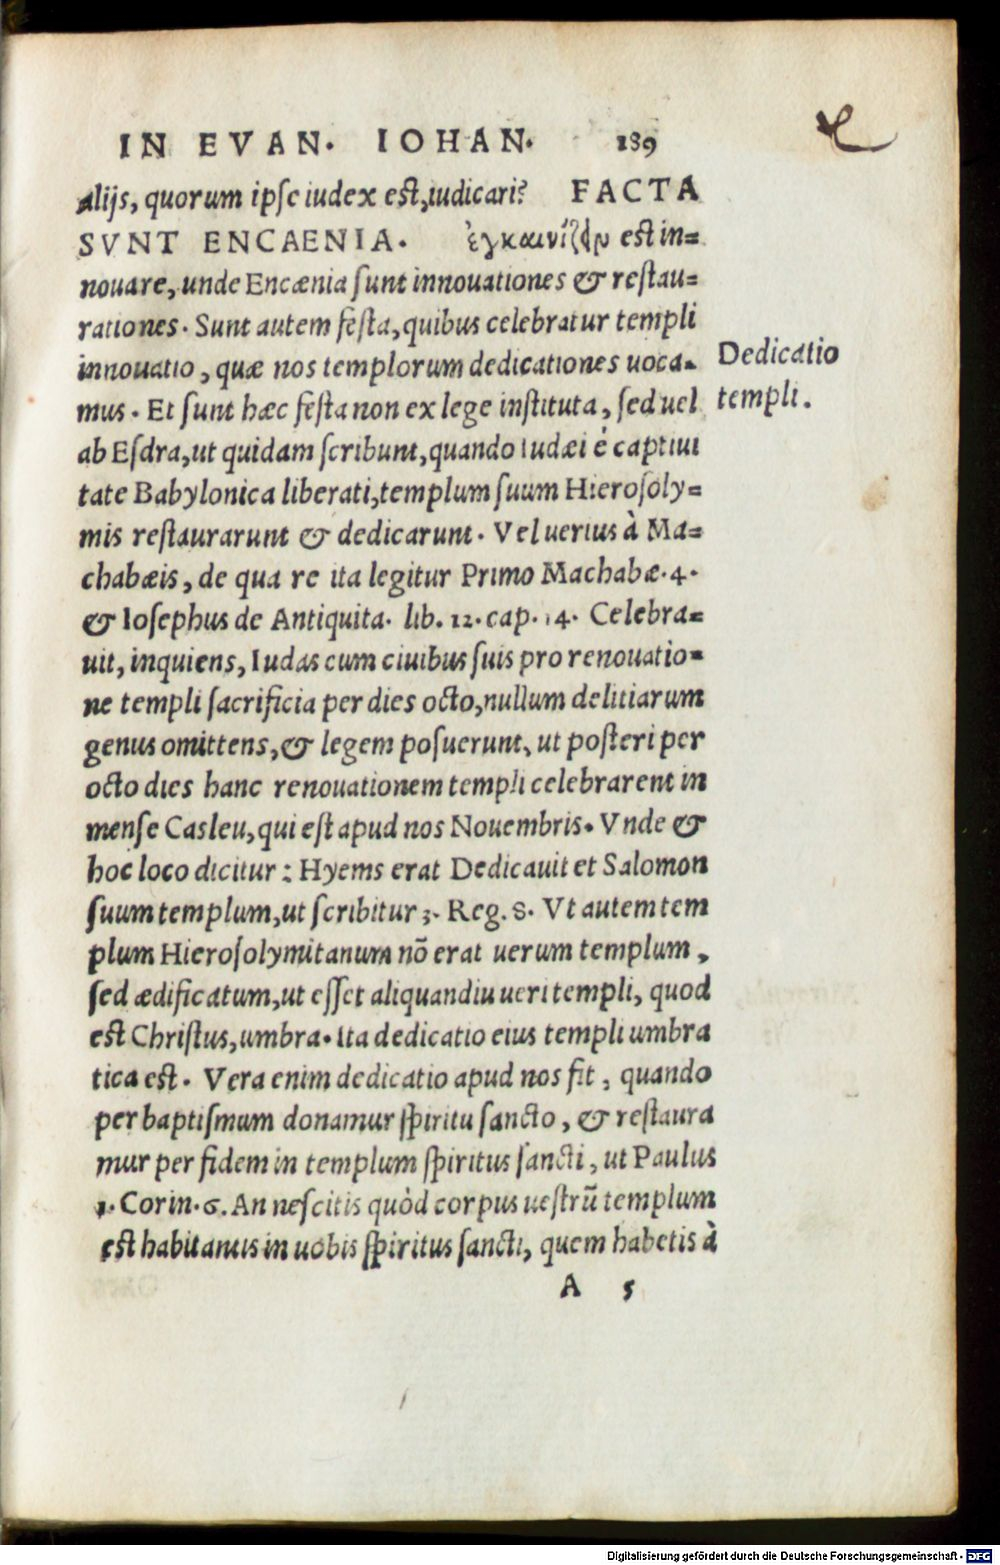 IN EVAN. IOHAN. 189
alijs, quorum ipse iudex est, iudicari? FACTA
SVNT ENCAENIA. ἐγκαινίζειν est in=
nouare, unde Encænia sunt innouationes & restau=
rationes. Sunt autem festa, quibus celebratur templi
innouatio, quæ nos templorum dedicationes uoca=
mus. Et sunt hæc festa non ex lege instituta, sed uel
Dedicatio
templi.
ab Esdra, ut quidam scribunt, quando Iudæi è captiui
tate Babylonica liberati, templum suum Hierosoly=
mis restaurarunt & dedicarunt. Vel uerius à Ma=
chabæis, de qua re ita legitur Primo Machabæ. 4.
& Iosephus de Antiquita. lib. 12. cap. 14. Celebra=
uit, inquiens, Iudas cum ciuibus suis pro renouatio=
ne templi sacrificia per dies octo, nullum delitiarum
genus omittens, & legem posuerunt, ut posteri per
octo dies hanc renouationem templi celebrarent in
mense Casleu, qui est apud nos Nouembris. Vnde &
hoc loco dicitur: Hyems erat Dedicauit et Salomon
suum templum, ut scribitur 3. Reg. 8. Vt autem tem
plum Hierosolymitanum nō erat uerum templum,
sed ædificatum, ut esset aliquandiu ueri templi, quod
est Christus, umbra. Ita dedicatio eius templi umbra
tica est. Vera enim dedicatio apud nos fit, quando
per baptismum donamur spiritu sancto, & restaura
mur per fidem in templum spiritus sancti, ut Paulus
1. Corin. 6. An nescitis quòd corpus uestrū templum
est habitantis in uobis spiritus sancti, quem habetis à
A 5
Digitalisierung gefördert durch die Deutsche Forschungsgemeinschaft - DFG